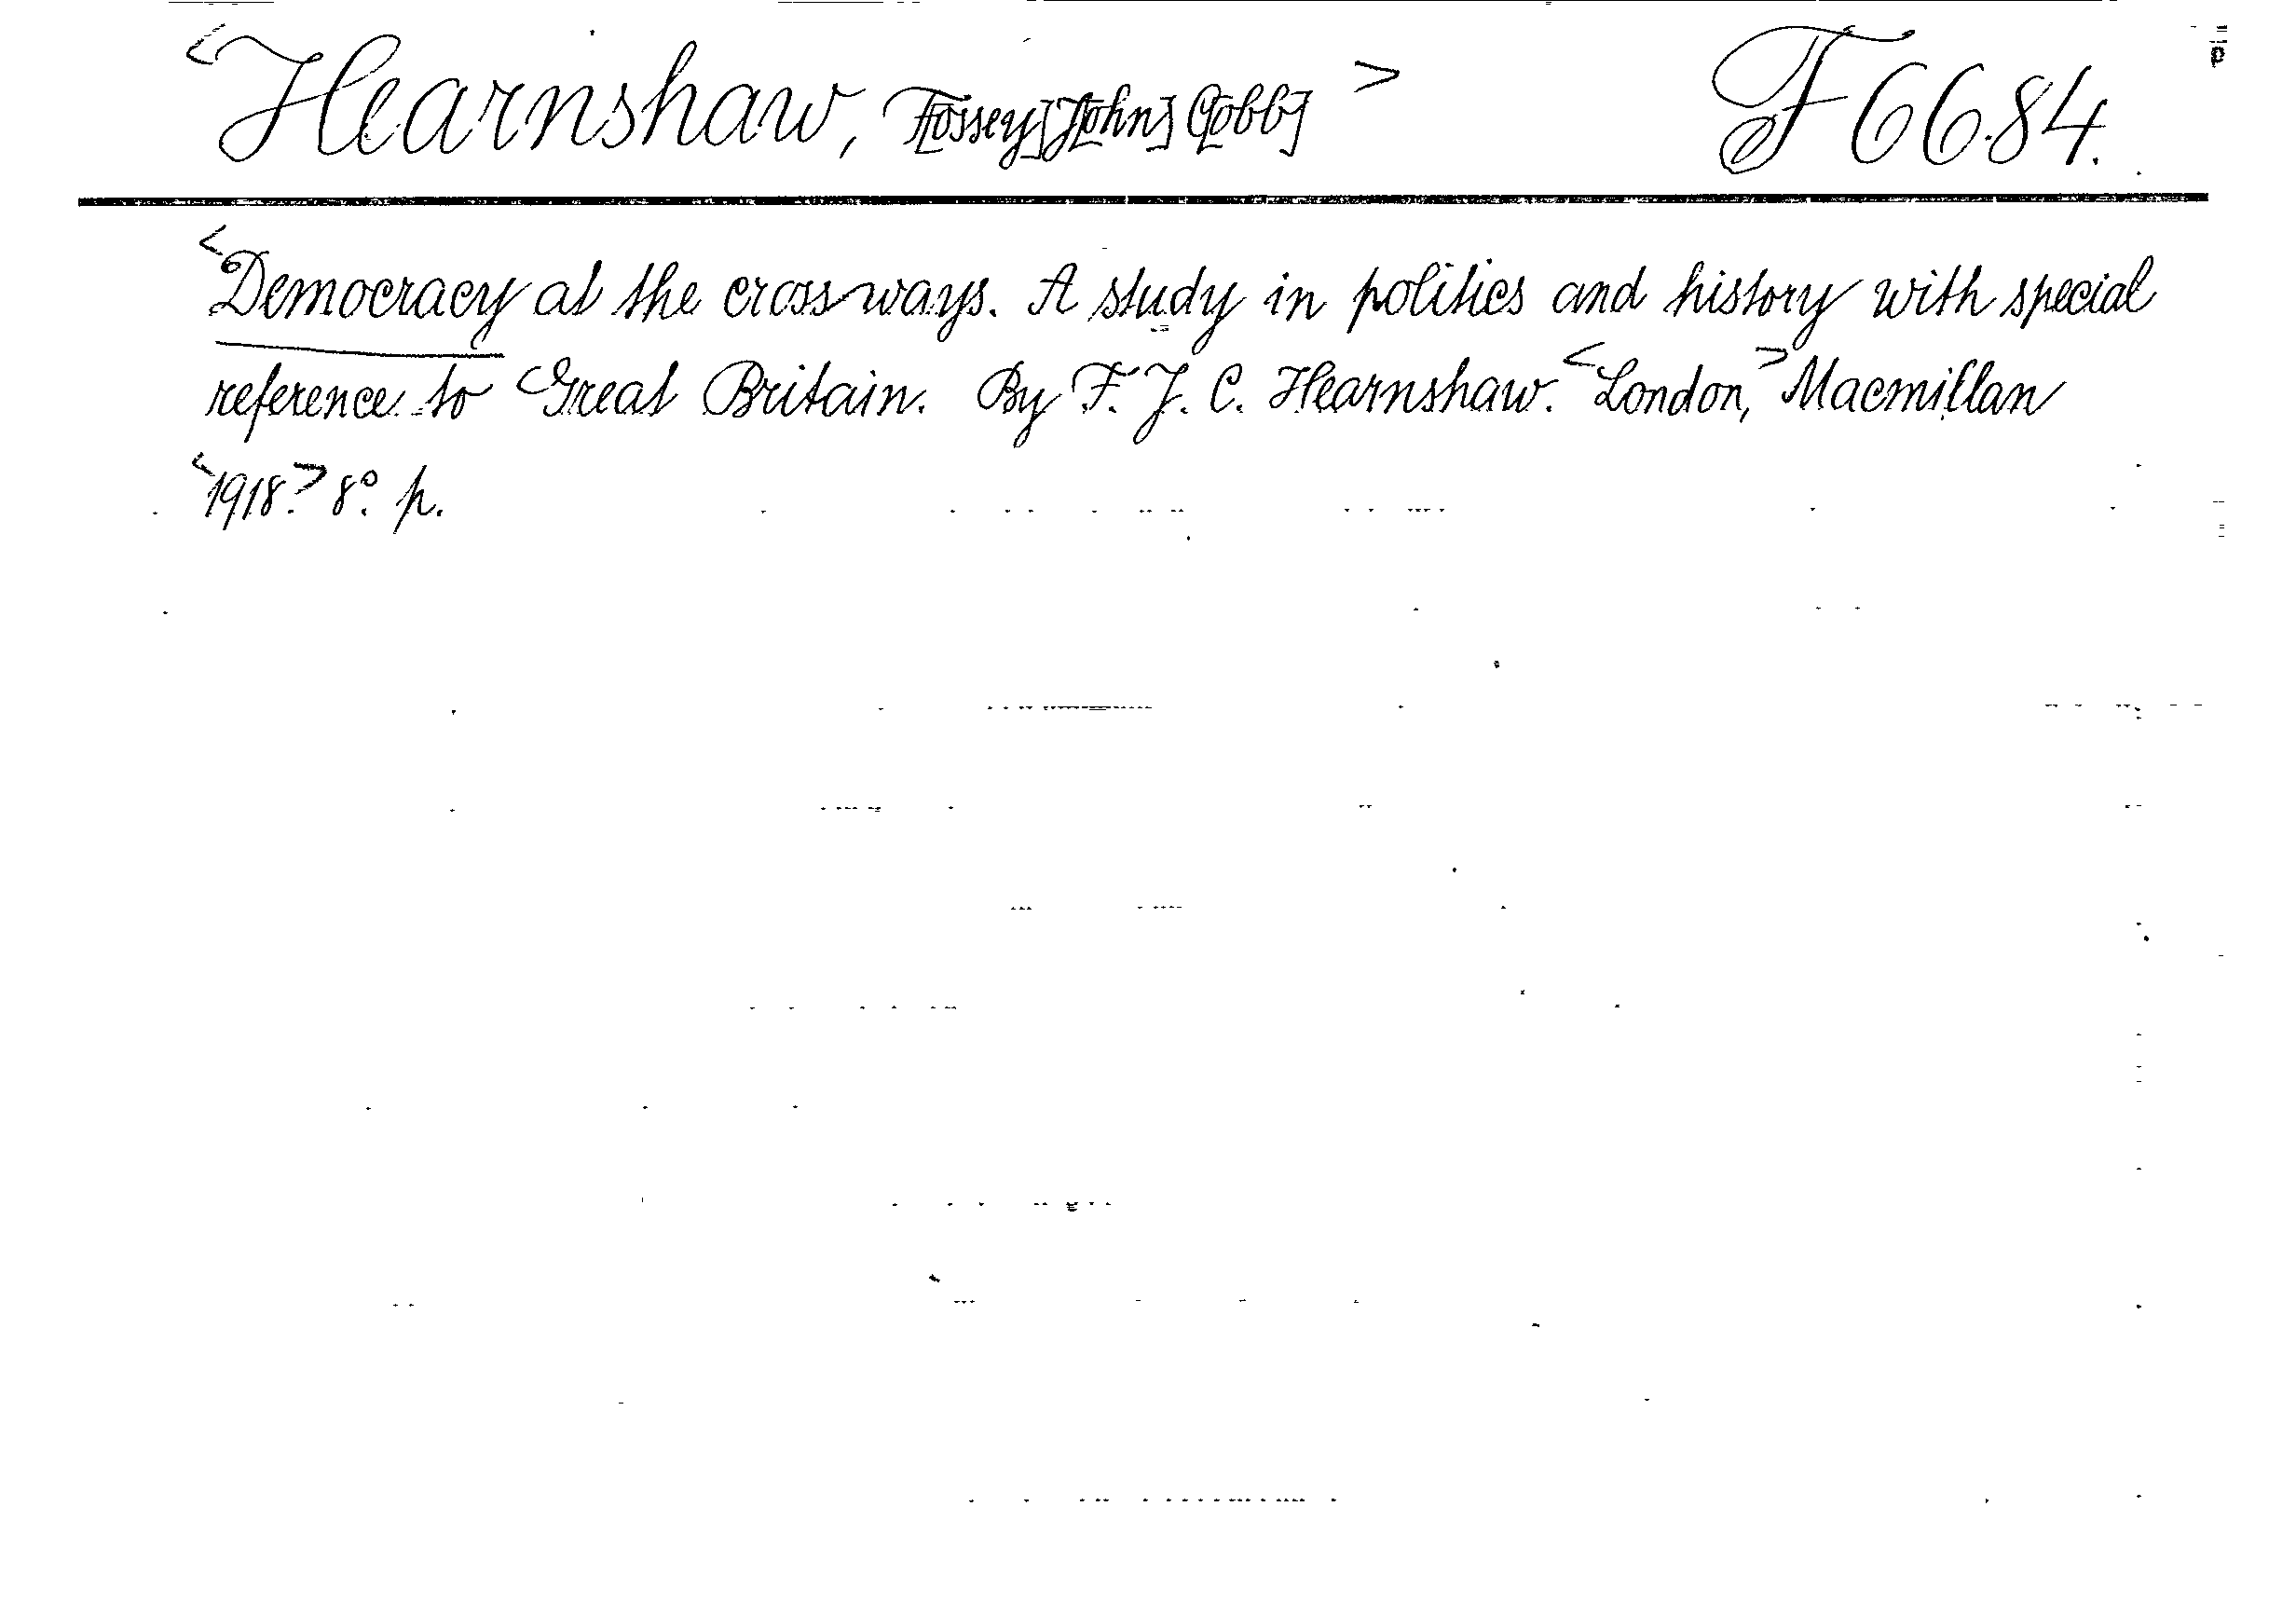 <Hearnshaw, F[ossey] J[ohn] C[obb]> F 66.84.
<Democracy at the crossways. A study in politics and history with special
reference to Great Britain. By F. J. C. Hearnshaw. <London,> Macmillan
<1918.> 8°. p.